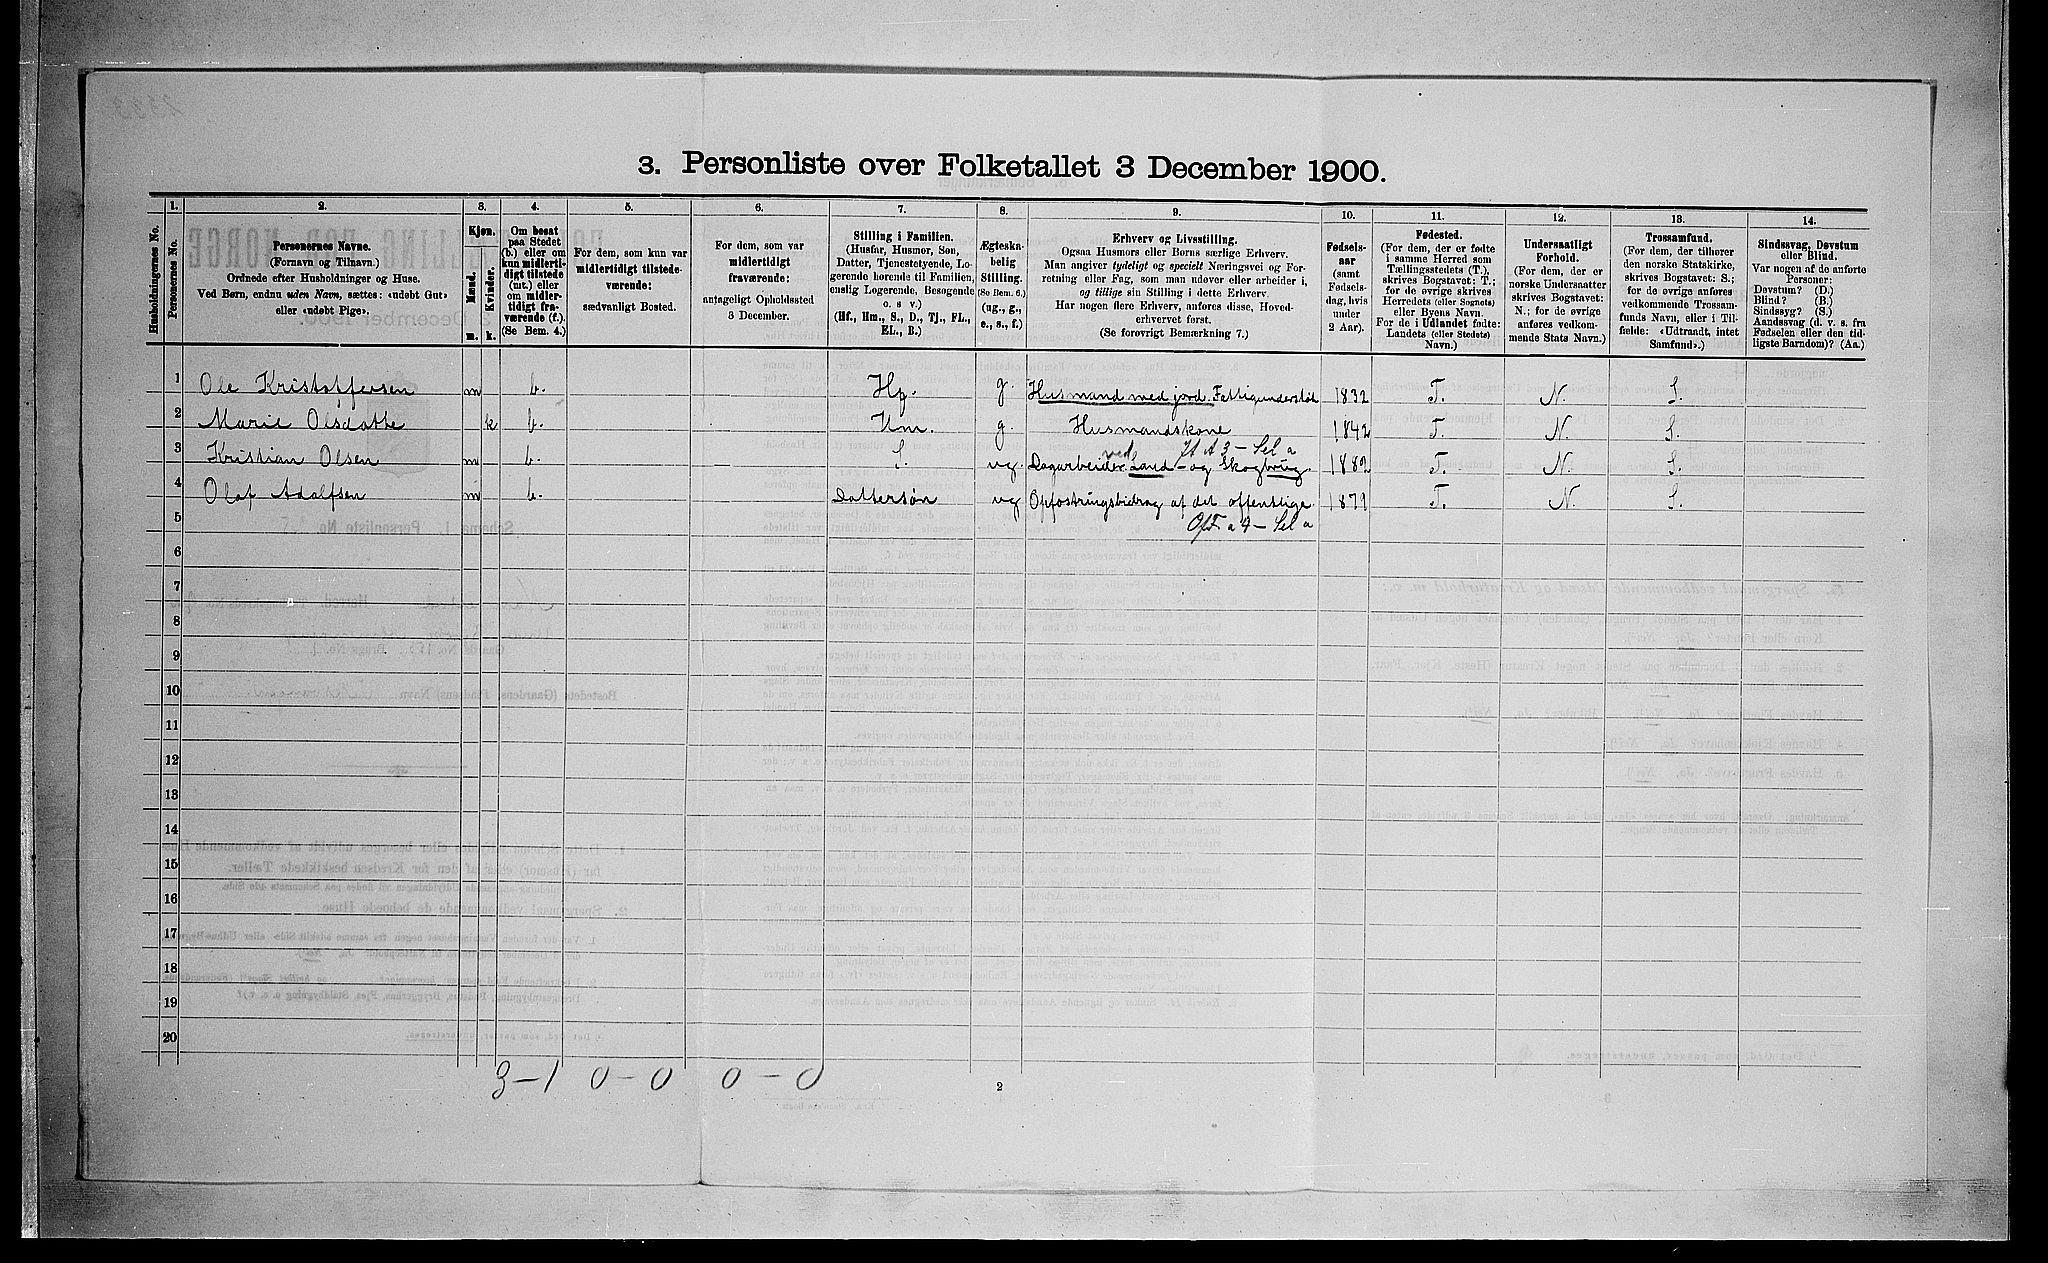 3. Personliste over Folketallet 3 December 1900.
1. 2. 3. 4. 5. 6. 7. 8. 9. 10. 11. 12. 13. 14.
Husholdningernes No.
Personernes No.
Personernes Navne.
(Fornavn og Tilnavn.)
Ordnede efter Husholdninger og Huse.
Ved Børn, endnu uden Navn, sættes: «udøbt Gut»
eller «udøbt Pige».
Kjøn.
Mænd.
Kvinder.
m. k.
Om bosat
paa Stedet
(b.) eller om
kun midlerti-
digt tilstede
(mt.) eller
om midler-
tidigt fra-
værende (f.).
(Se Bem. 4.)
For dem, som kun var
midlertidigt tilstede-
værende:
sædvanligt Bosted.
For dem, som var
midlertidigt
fraværende:
antageligt Opholdssted
3 December.
Stilling i Familien.
(Husfar, Husmor, Søn,
Datter, Tjenestetyende, Lo-
gerende hørende til Familien,
enslig Logerende, Besøgende
o. s v.)
(Hf., Hm., S., D., Tj., FL.,
EL., B.)
Ægteska-
belig
Stilling.
(Se Bem. 6.)
(ug., g.,
e., s., f.)
Erhverv og Livsstilling.
Ogsaa Husmors eller Børns særlige Erhverv.
Man angiver tydeligt og specielt Næringsvei og For-
retning eller Fag, som man udøver eller arbeider i,
og tillige sin Stilling i dette Erhverv.
Har nogen flere Erhverv, anføres disse, Hoved-
erhvervet først.
(Se forøvrigt Bemærkning 7.)
Fødsels-
aar
(samt
Fødsels-
dag, hvis
under
2 Aar).
Fødested.
(For dem, der er fødte
i samme Herred som
Tællingsstedets (T.),
skrives Bogstavet: T.;
for de øvrige skrives
Herredets (eller Sognets)
eller Byens Navn.
For de i Udlandet fødte:
Landets (eller Stedets)
Navn.)
Undersaatligt
Forhold.
(For dem, der er
norske Undersaatter
skrives Bogstavet:
N.; for de øvrige
anføres vedkom-
mende Stats Navn.)
Trossamfund.
(For dem, der tilhører
den norske Statskirke,
skrives Bogstavet: S.;
for de øvrige anføres
vedkommende Trossam-
funds Navn, eller i Til-
fælde: «Udtraadt, intet
Samfund».)
Sindssvag, Døvstum
eller Blind.
Var nogen af de anførte
Personer:
Døvstum? (D.)
Blind? (B.)
Sindssyg? (S.)
Aandssvag (d. v. s. fra
Fødselen eller den tid-
ligste Barndom)? (Aa.)
1 Ole Kristoffersen m b. Hf. g. Husmand med jord. Fattigunderstøt 1832 T. N. S.
2 Marie Olsdatte k b. Hm. g. Husmandskone 1842 T. N. S.
3 Kristian Olsen m b. S. ug. Dagarbeider ved Land- og Skogbrug. 1882 T. N. S.
4 Olaf Adolfsen m b. Dattersøn ug Opfostringsbidrag af det offentlige. 1879 T. N. S.
5
6
7
8
9
10
11
12
13
14
15
16
17
18
19
20
3-1 0-0 0-0
2